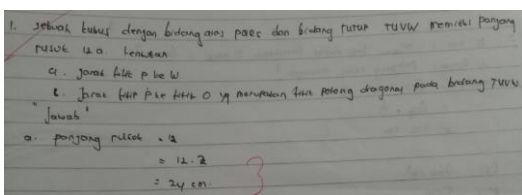 1. sebuah kubus dengan bidang alas PQRS dan bidang tutup TUVW memiliki panjang
rusuk 12 a. tentukan
a. Jarak titik P ke W
b. Jarak titik P ke titik O yg merupakan titik potong diagonal pada bidang TUVW
"Jawab"
a. panjang rusuk = 12
= 12.2
= 24 cm
3